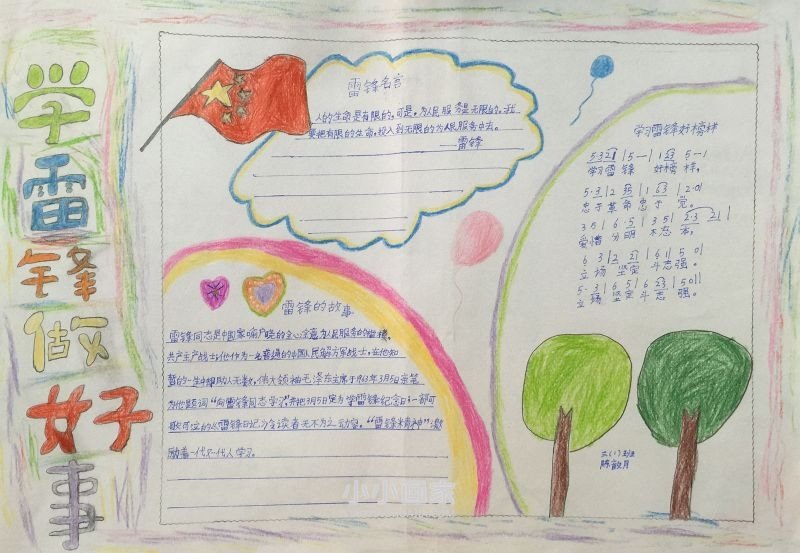 学雷锋做好事
雷锋名言
人的生命是有限的,可是,为人民服务是无限的。我
要把有限的生命,投入到无限的为人民服务中去。
——雷锋
学习雷锋好榜样
5·3 2 1 | 5 — | 1 6 3 5 — |
学习雷锋 好榜样,
5·3 | 2 35 | 1 63 | 2·0 |
忠于革命忠于党。
3 5 | 6 5 | 3 5 | 2·3 2 |
爱憎分明不忘本,
6 3 | 2 2 | 6 1 | 5 0 |
立场坚定斗志强。
5·3 | 6 5 | 6 23 | 5 0 ||
立场坚定斗志强。
雷锋的故事
雷锋同志是中国家喻户晓的全心全意为人民服务的楷模,
共产主义战士!他作为一名普通的中国人民解放军战士,在他短
暂的一生中帮助人无数,伟大领袖毛泽东主席于1963年3月5日亲笔
为他题词“向雷锋同志学习”,并把3月5日定为学雷锋纪念日!一部可
歌可泣的《雷锋日记》令读者无不为之动容。“雷锋精神”激
励着一代又一代人学习。
六(1)班
陈
小小画家